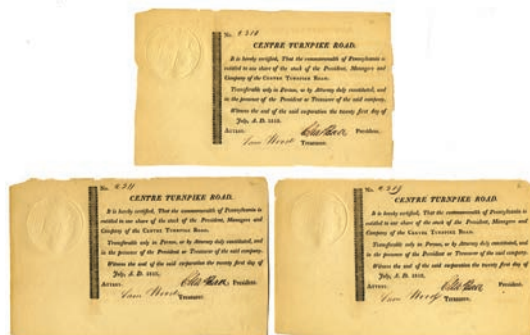 No.
CENTRE TURNPIKE ROAD.
It is hereby certified, That the commonwealth of Pennsylvania is
entitled to one share of the stock of the President, Managers and
Company of the CENTRE TURNPIKE ROAD.
Transferable only in Person, or by Attorney duly constituted, and
in the presence of the President or Treasurer of the said company.
Witness the seal of the said corporation the twenty first day of
July, A. D.
ATTEST. President.
Treasurer.
No.
CENTRE TURNPIKE ROAD.
It is hereby certified, That the commonwealth of Pennsylvania is
entitled to one share of the stock of the President, Managers and
Company of the CENTRE TURNPIKE ROAD.
Transferable only in Person, or by Attorney duly constituted, and
in the presence of the President or Treasurer of the said company.
Witness the seal of the said corporation the twenty first day of
July, A. D.
ATTEST. President.
Treasurer.
No.
CENTRE TURNPIKE ROAD.
It is hereby certified, That the commonwealth of Pennsylvania is
entitled to one share of the stock of the President, Managers and
Company of the CENTRE TURNPIKE ROAD.
Transferable only in Person, or by Attorney duly constituted, and
in the presence of the President or Treasurer of the said company.
Witness the seal of the said corporation the twenty first day of
July, A. D.
ATTEST. President.
Treasurer.